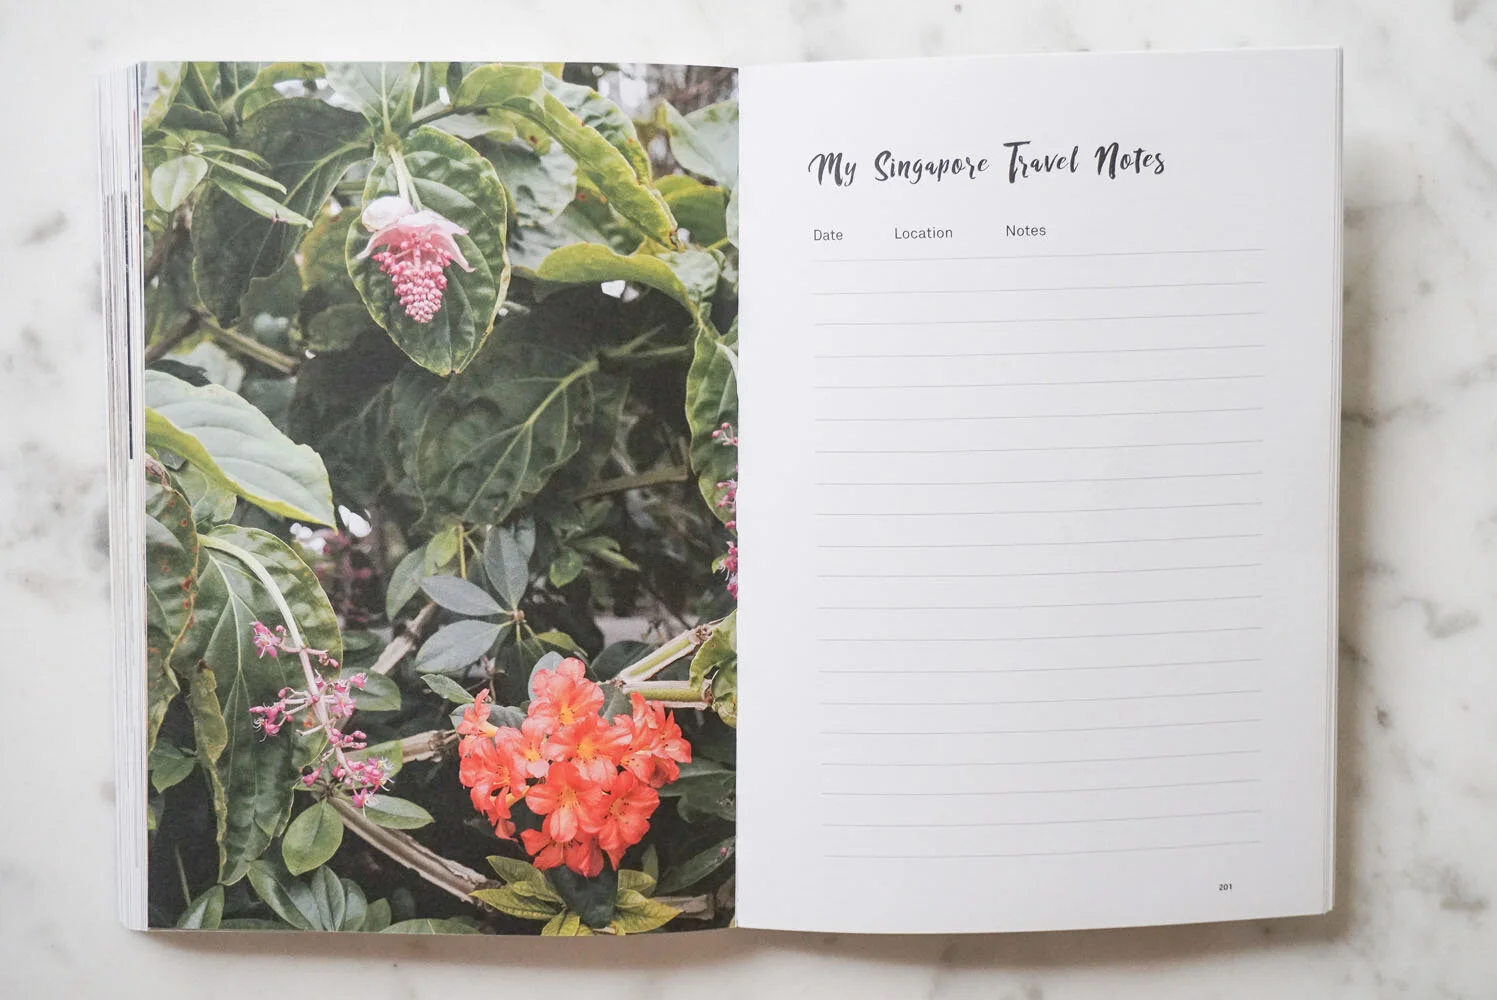 My Singapore Travel Notes
Date Location Notes
201